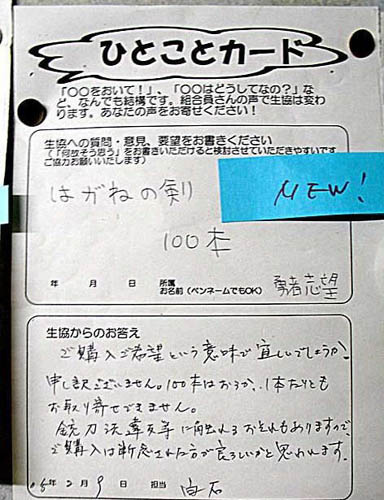 ひとことカード
「○○をおいて！」、「○○はどうしてなの？」な
ど、なんでも結構です。組合員さんの声で生協は変わ
ります。あなたの声をお寄せください！
生協への質問・意見、要望をお書きください
（「何故そう思う」をお書きいただけると検討させていただきやすいです
ご協力お願いいたします）
はがねの剣
NEW!
100本
年 月 日 所属
お名前（ペンネームでもOK） 勇者志望
生協からのお答え
ご購入ご希望という意味で宜しいでしょうか？
申し訳ございません。100本はおろか、1本たりとも
お取り寄せできません。
銃刀法違反等に問われるおそれもありますので
ご購入は断念された方が良ろしいかと思われます。
年2月9日 担当 白石